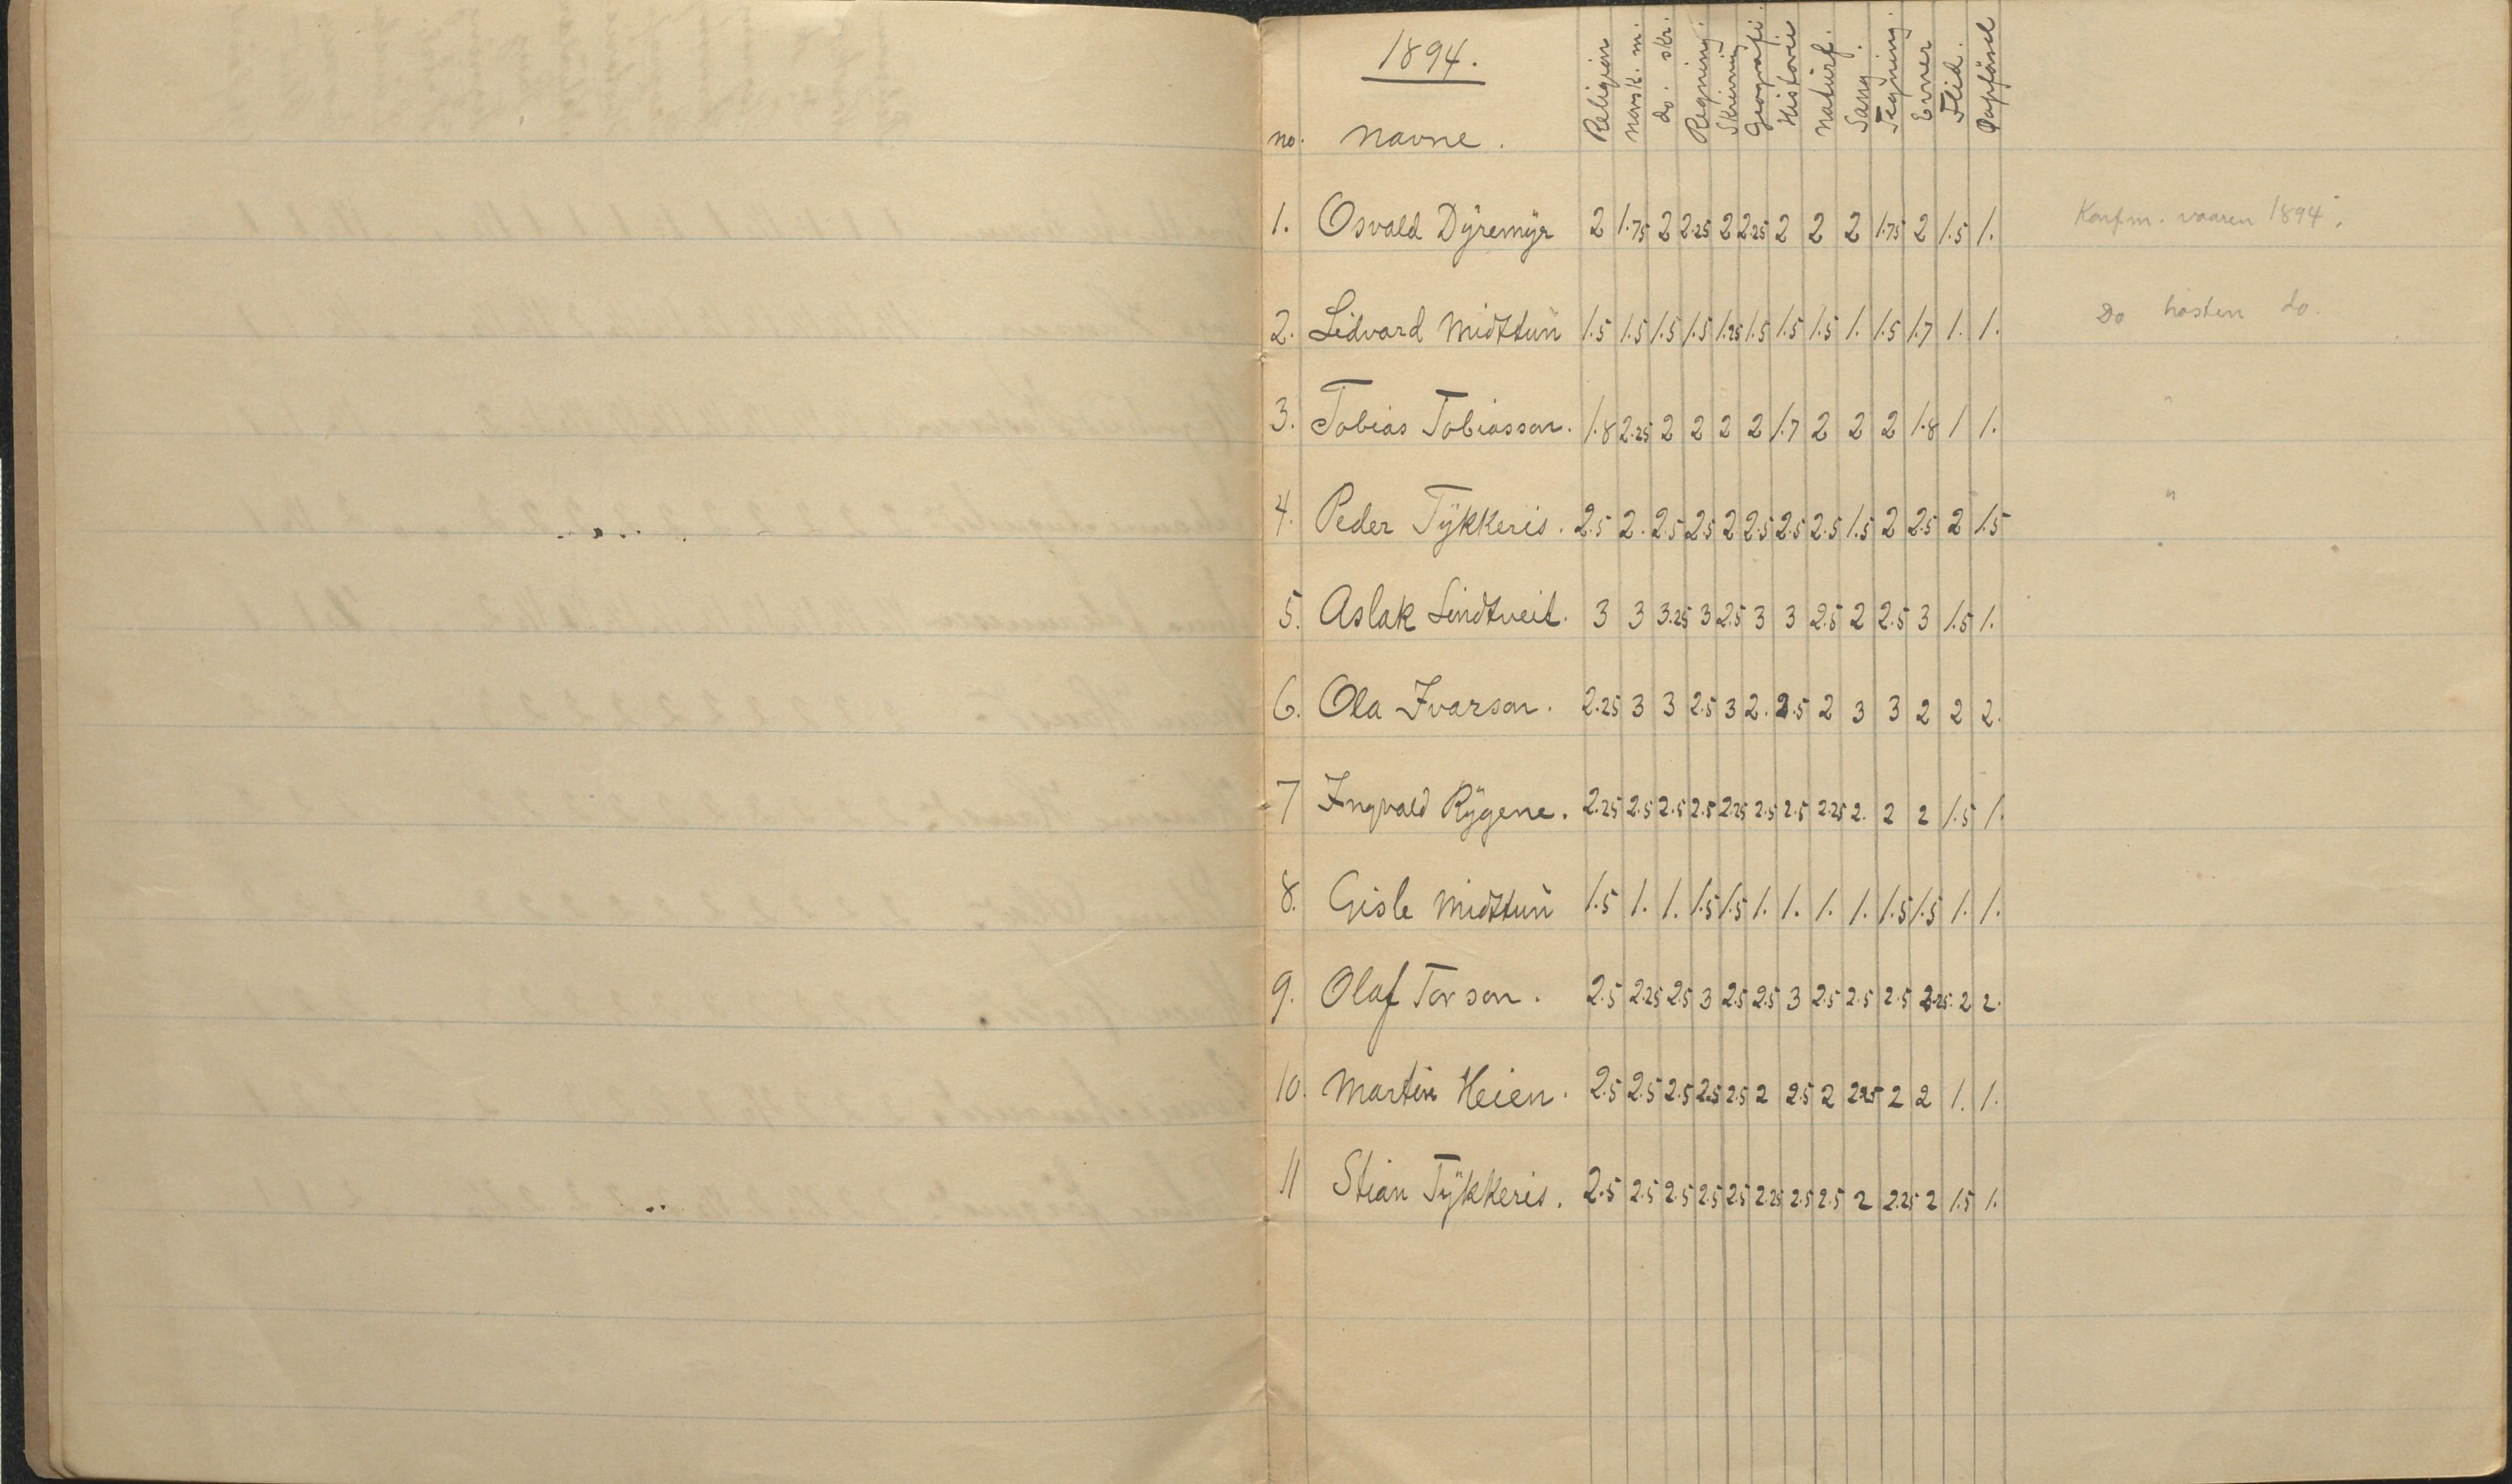 1894.
no. Navne. Religion Norsk. m. do. skr. Regning. Skrivning Geografi. Historie Naturf. Sang. Tegning. Evner Flid. Opførsel
1. Osvald Dÿremÿr 2 1.75 2 2.25 2 2.25 2 2 2 1.75 2 1.5 1. Konfm. vaaren 1894.
2. Lidvard Midttun 1.5 1.5 1.5 1.5 1.25 1.5 1.5 1.5 1. 1.5 1.7 1. 1. Do høsten do.
3. Tobias Tobiasson. 1.8 2.25 2 2 2 2 1.7 2 2 2 1.8 1 1. "
4. Peder Tÿkkeris. 2.5 2. 2.5 2.5 2 2.5 2.5 2.5 1.5 2 2.5 2 1.5 "
5. Aslak Lindtveit. 3 3 3.25 3 2.5 3 3 2.5 2 2.5 3 1.5 1.
6. Ola Ivarson. 2.25 3 3 2.5 3 2. 2.5 2 3 3 2 2 2.
7 Ingvald Rÿgene. 2.25 2.5 2.5 2.5 2.25 2.5 2.5 2.25 2. 2 2 1.5 1.
8. Gisle Midttun 1.5 1. 1. 1.5 1.5 1. 1. 1. 1. 1.5 1.5 1. 1.
9. Olaf Torson. 2.5 2.25 2.5 3 2.5 2.5 3 2.5 2.5 2.5 2.25. 2 2.
10. Martin Heien. 2.5 2.5 2.5 2.5 2.5 2 2.5 2 2.25 2 2 1. 1.
11 Stian Tÿkkeris. 2.5 2.5 2.5 2.5 2.5 2.25 2.5 2.5 2 2.25 2 1.5 1.